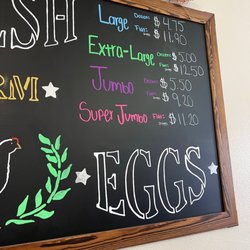 SH
RM
Large Dozen: $4.75
Extra-Large Dozen: $5.00
Flat: $12.50
Jumbo Dozen: $5.50
Flat: $9.20
Super Jumbo Flat: $11.20
EGGS